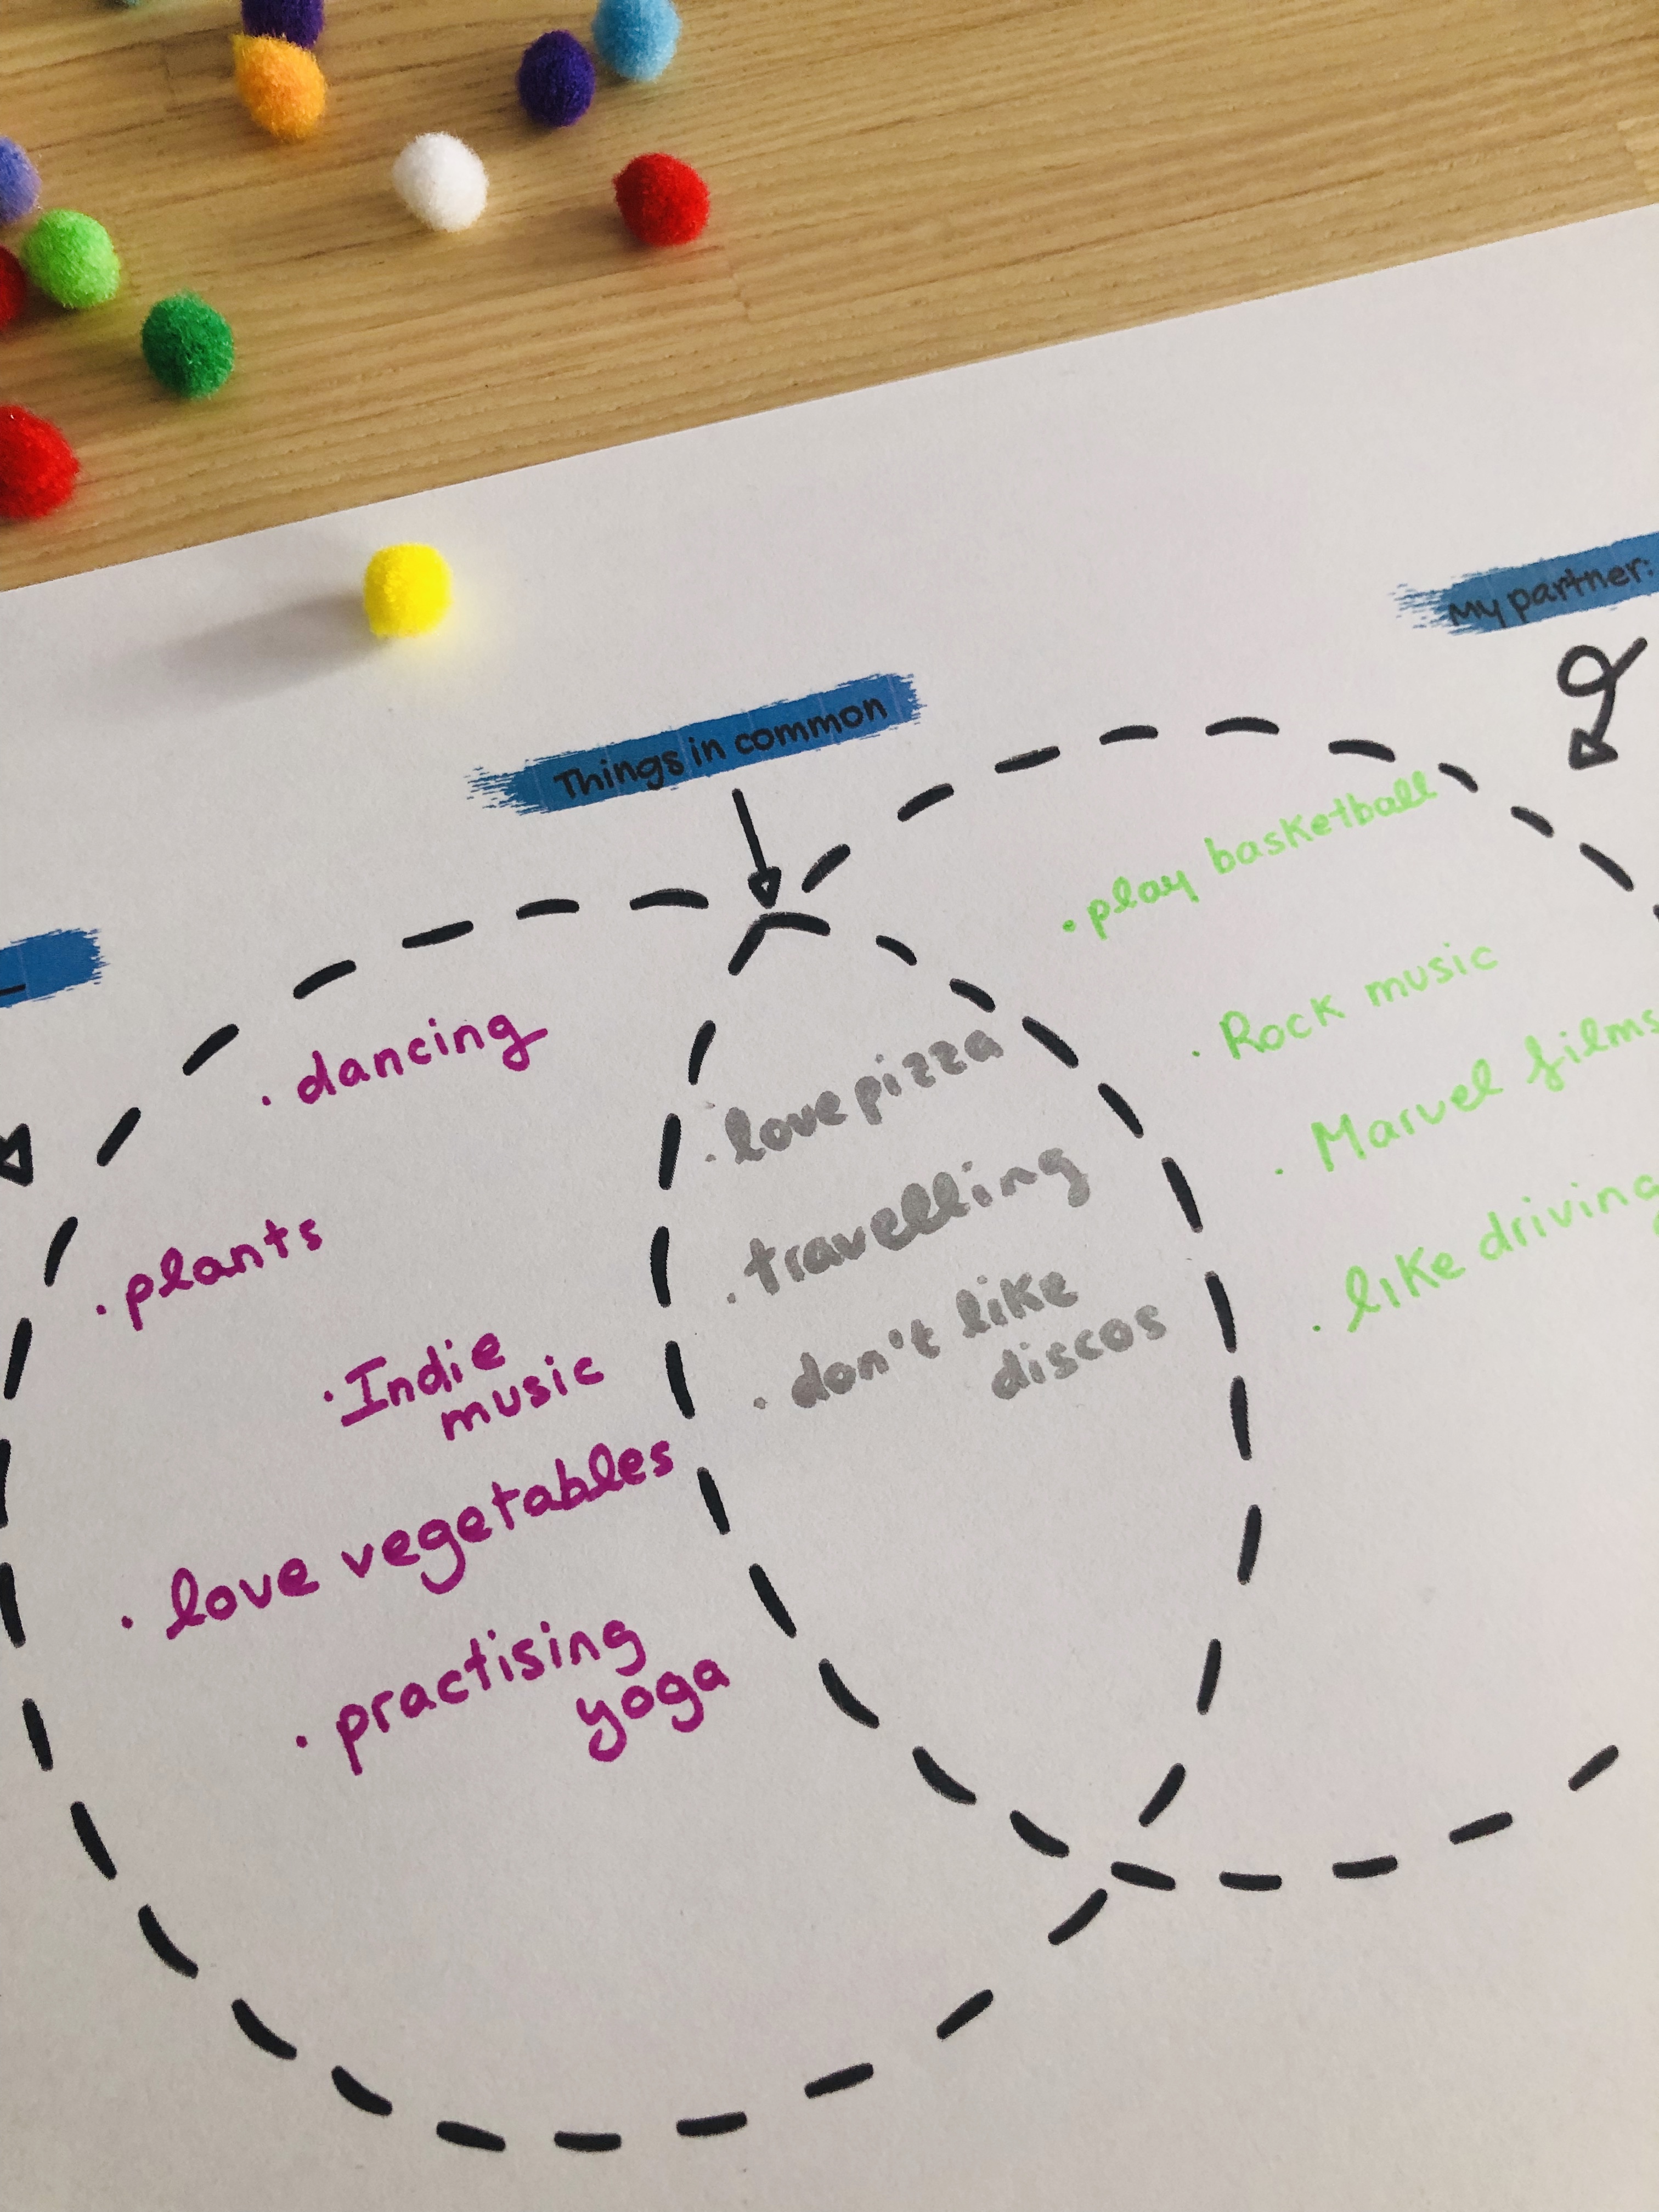 Things in common
My partner:
. dancing
. plants
. Indie
music
. love vegetables
. practising
yoga
. love pizza
. travelling
. don't like
discos
. play basketball
. Rock music
. Marvel films
. like driving